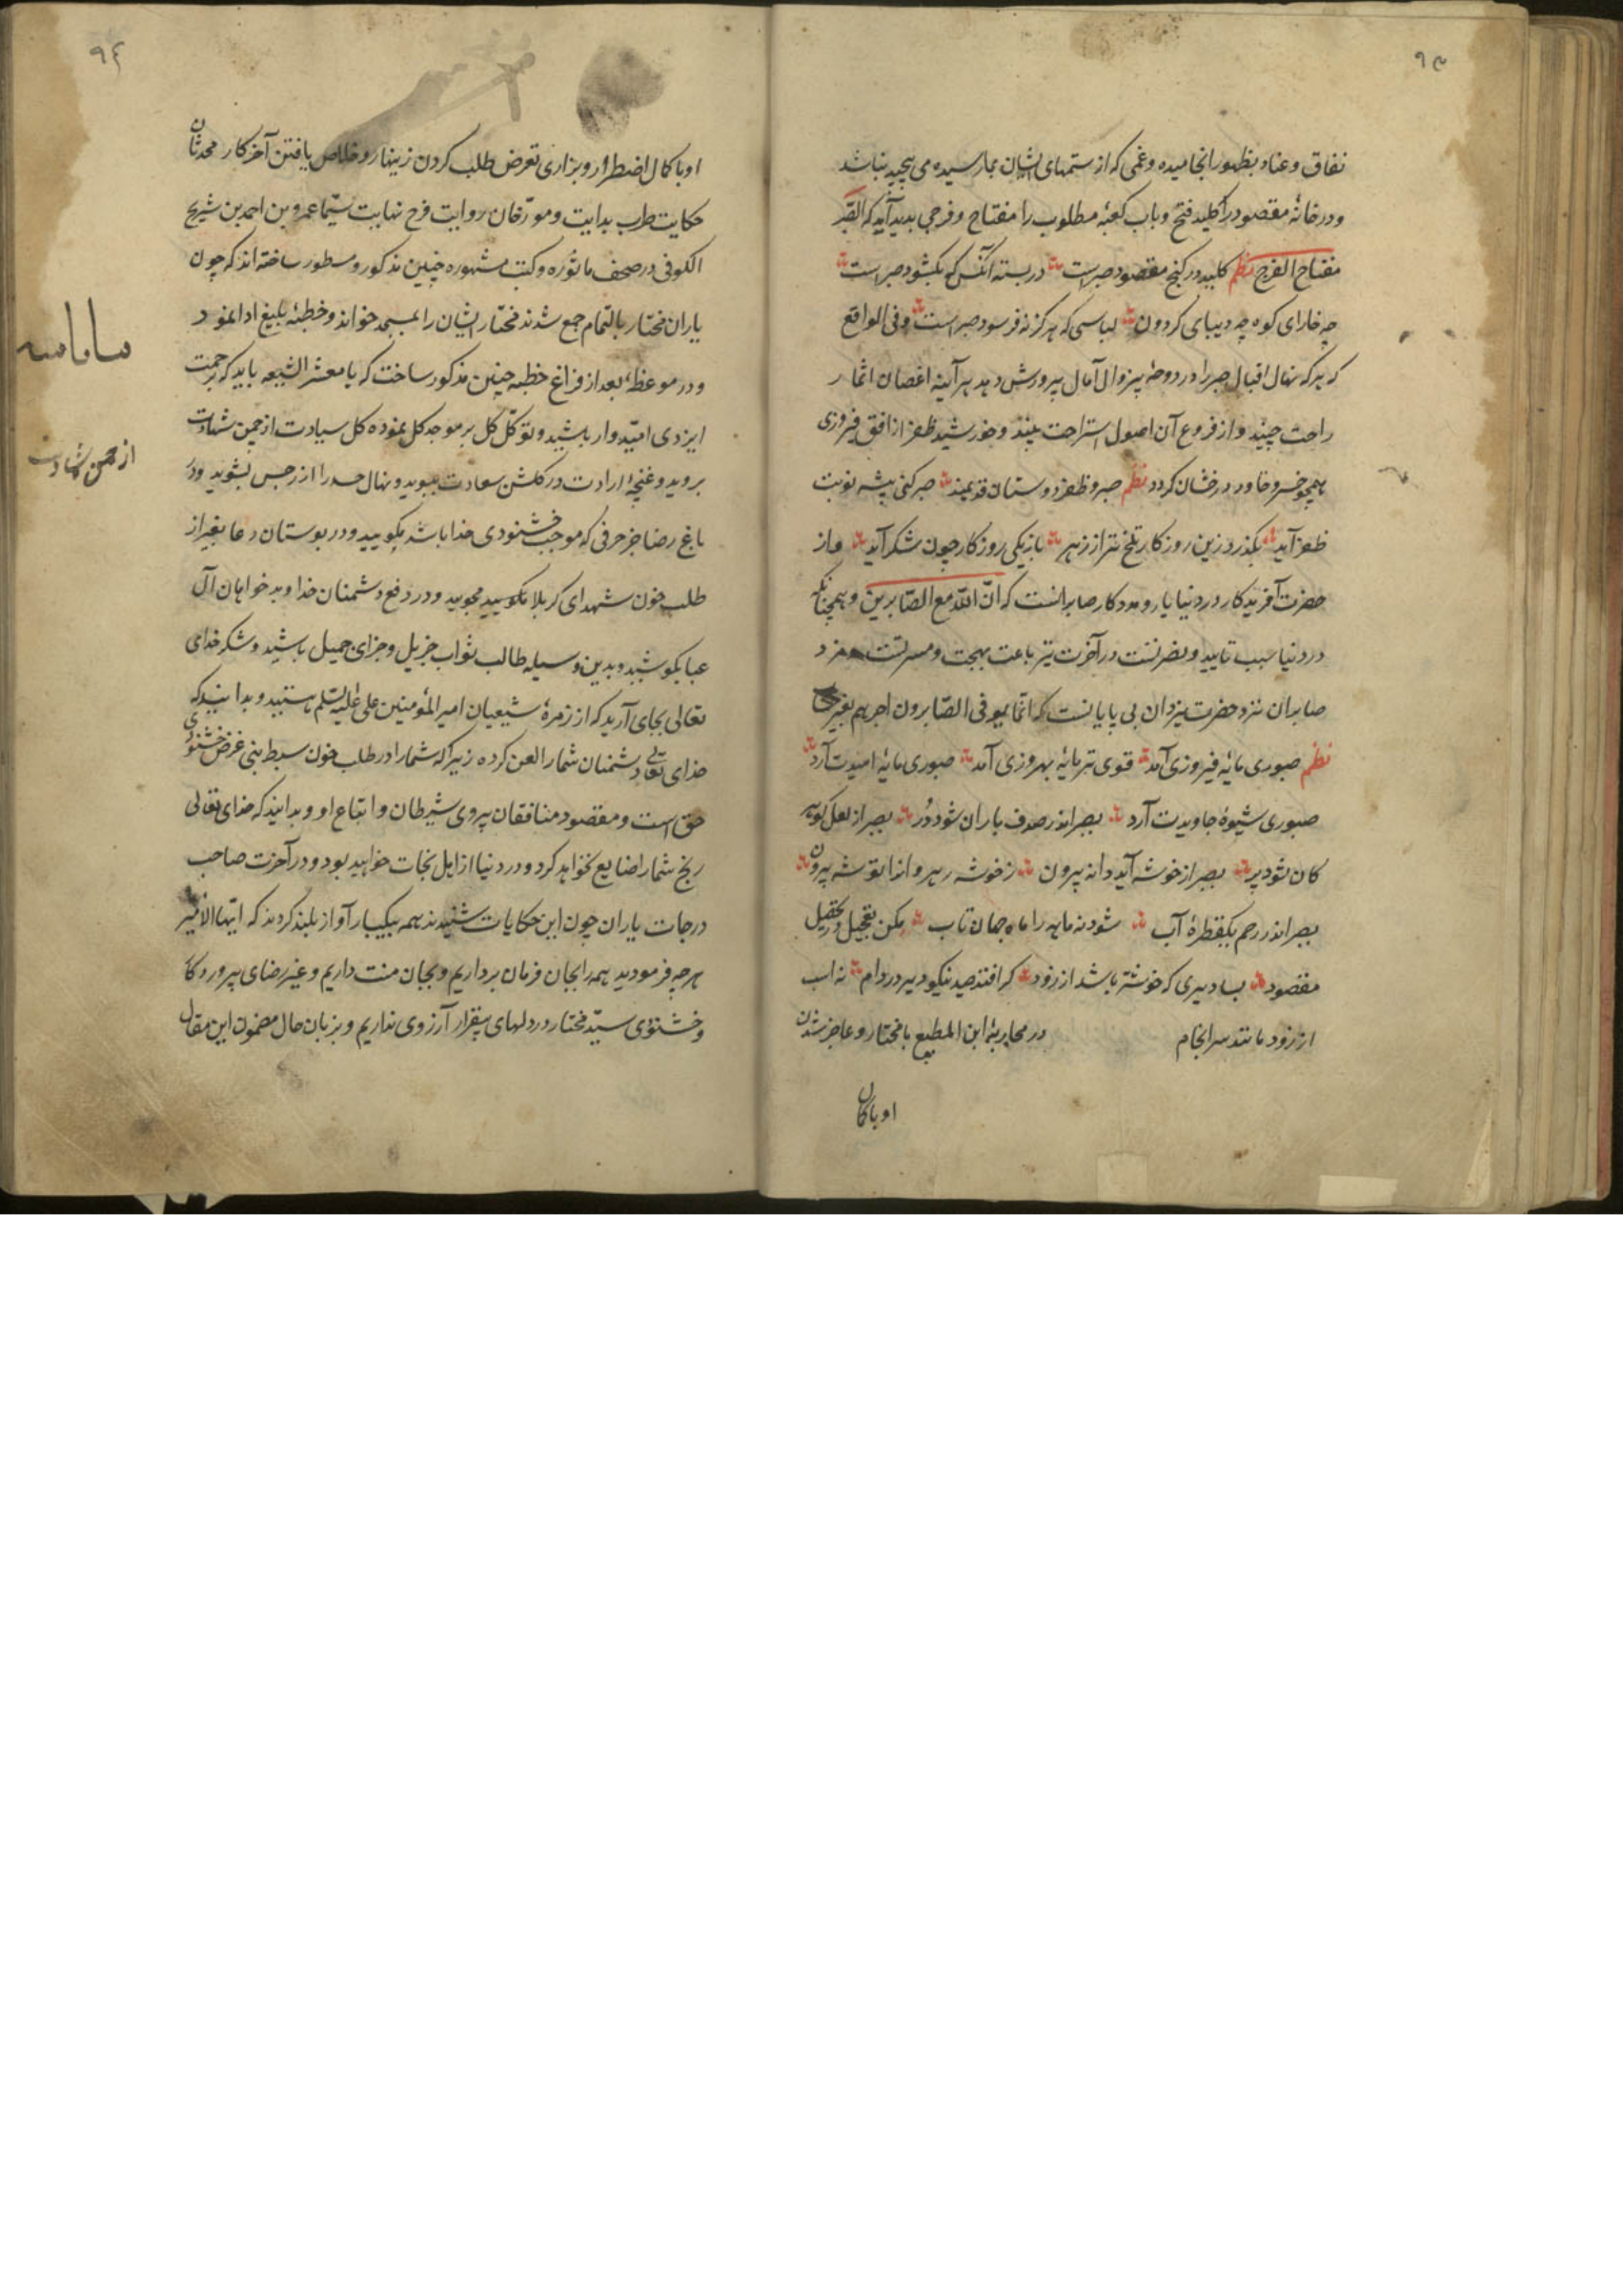 ۹۳
نفاق و عناد بظهور انجامیده و غمی که از ستمهای ایشان بما رسیده می بیحد نباشد
و در خانهٔ مقصود را کلید فتح و باب کعبهٔ مطلوب را مفتاح و فرجی بدید آید که الصّبر
مفتاح الفرج نظم کلید در کنج مقصود صبر است در بسته آنکس که بکشود صبر است
چه خارای کوه چه دیبای کردون لباسی که هرکز نه فرسود صبر است و فی الواقع
که هرکه نهال اقبال صبر را در دوحهٔ بیزوال آمال پرورش دهد هر آینه اغصان اثمار
راحت چیند و از فروع آن اصول استراحت بیند و خورشید ظفر از افق فیروزی
همچو خسرو خاور درخشان کردد نظم صبر و ظفر دوستان قدیمند صبر کنی پیشه نوبت
ظفر آید بکذرد زین روزکار تلخ تر از زهر باز یکی روزکار چون شکر آید و از
حضرت آفریدکار در دنیا یار و مددکار صابرانست که انّ اللّه مع الصّابرین و همچنانکه
در دنیا سبب تایید و نصرتست در آخرت نیز باعث بهجت و مسرتست مزد
صابران نزد حضرت یزدان بی پایانست که انّما یوفی الصّابرون اجرهم بغیر حساب
نظم صبوری مایهٔ فیروزی آمد قوی تر مایهٔ بهروزی آمد صبوری مایهٔ امیدت آرد
صبوری شیوهٔ جاویدت آرد بصبر اندر صدف باران شود دُر بصبر از لعل کوهر
کان شود پر بصبر از خوشه آید دانه بیرون ز خوشه رهروانرا توشه بیرون
بصبر اندر رحم یکقطرهٔ آب شود نه ماهه را ماه جهان تاب مکن تعجیل در تحصیل
مقصود بسا دیری که خوشتر باشد از زود کر افتد صید نیکو دیر در دام نه اسب
از زود ماند سرانجام در محاربهٔ ابن المطیع با مختار و عاجز شدن
او با کمال
۹۴
او با کمال اضطرار و بزاری تعرض طلب کردن زینهار و خلاص یافتن آخر کار محدثان
حکایت طرب بدایت و مورّخان روایت فرح نهایت سیّما عمرو بن احمد بن شریح
الکوفی در صحف ماثوره و کتب مشهوره چنین مذکور و مسطور ساخته اند که چون
یاران مختار بالتمام جمع شدند مختار ایشان را بمسجد خواند و خطبهٔ بلیغ ادا نمود
و در موعظه بعد از فراغ خطبه چنین مذکور ساخت که یا معشر الشیعه باید که برحمت
ایزدی امیّدوار باشید و توکّل کل بر موجد کل نموده کل سیادت از چمن شهادت
بروید و غنچهٔ ارادت در کلشن سعادت ببوید و نهال حسد را از رجس بشوید و در
باغ رضا جز حرفی که موجب خشنودی خدا باشد مکویید و در بوستان دعا بغیر از
طلب خون شهدای کربلا مکویید مجویید و در دفع دشمنان خدا و بدخواهان آل
عبا بکوشید و بدین وسیله طالب ثواب جزیل و جزای جمیل باشید و شکر خدای
تعالی بجای آرید که از زمرهٔ شیعیان امیر المؤمنین علی علیه السّلم هستید و بدانید که
خدای تعالی دشمنان شما را لعن کرده زیرا که شما را در طلب خون سبط نبی غرض خشنودی
حق است و مقصود منافقان پیروی شیطان و اتباع او و بدانید که خدای تعالی
رنج شما را ضایع نخواهد کرد و در دنیا از اهل نجات خواهید بود و در آخرت صاحب
درجات یاران چون این حکایات شنیدند همه بیکبار آواز بلند کردند که ایّها الامیر
هرچه فرمودید همه را بجان فرمان برداریم و بجان منت داریم و غیر رضای پروردکار
و خشنودی سیّد مختار در دلهای بیقرار آرزوی نداریم و بزبان حال مضمون این مقال
از چمن شهادت